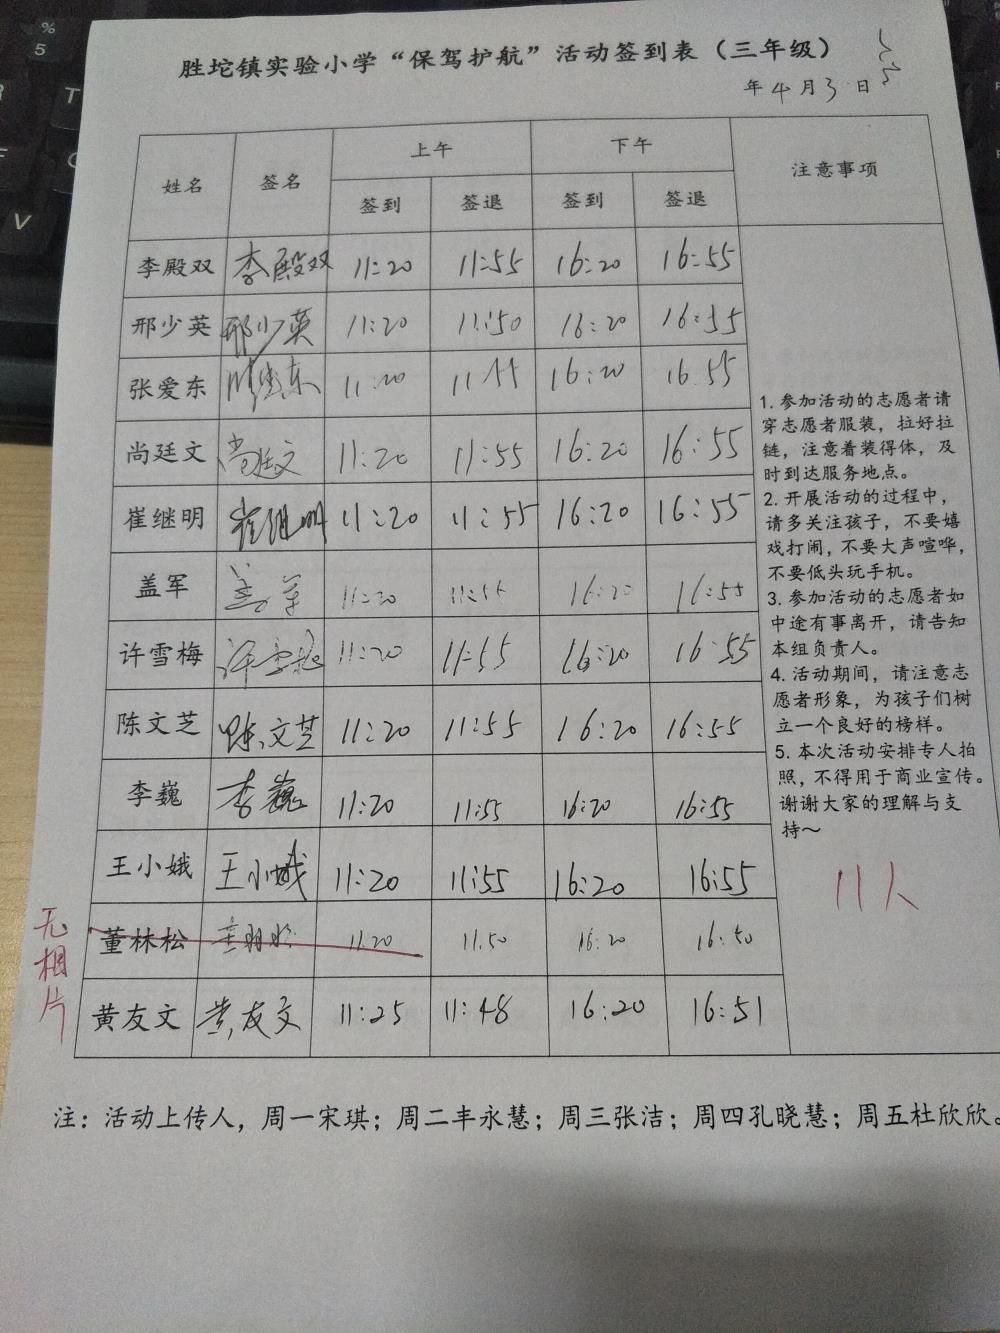 胜坨镇实验小学“保驾护航”活动签到表（三年级）
年4月3日
姓名 签名 上午 下午 注意事项
签到 签退 签到 签退
李殿双 李殿双 11:20 11:55 16:20 16:55
邢少英 邢少英 11:20 11:50 16:20 16:55
张爱东 11:20 11:55 16:20 16:55
尚廷文 尚廷文 11:20 11:55 16:20 16:55
崔继明 崔继明 11:20 11:55 16:20 16:55
盖军 盖军 11:20 11:55 16:20 16:55
许雪梅 许雪梅 11:20 11:55 16:20 16:55
陈文芝 陈文芝 11:20 11:55 16:20 16:55
李巍 李巍 11:20 11:55 16:20 16:55
王小娥 王小娥 11:20 11:55 16:20 16:55
无相片 董林松 11:20 11:50 16:20 16:50
黄友文 黄友文 11:25 11:48 16:20 16:51
1. 参加活动的志愿者请
穿志愿者服装，拉好拉
链，注意着装得体，及
时到达服务地点。
2. 开展活动的过程中，
请多关注孩子，不要嬉
戏打闹，不要大声喧哗，
不要低头玩手机。
3. 参加活动的志愿者如
中途有事离开，请告知
本组负责人。
4. 活动期间，请注意志
愿者形象，为孩子们树
立一个良好的榜样。
5. 本次活动安排专人拍
照，不得用于商业宣传。
谢谢大家的理解与支
持～
11人
注：活动上传人，周一宋琪；周二丰永慧；周三张洁；周四孔晓慧；周五杜欣欣。
%
5
R
T
F
G
V